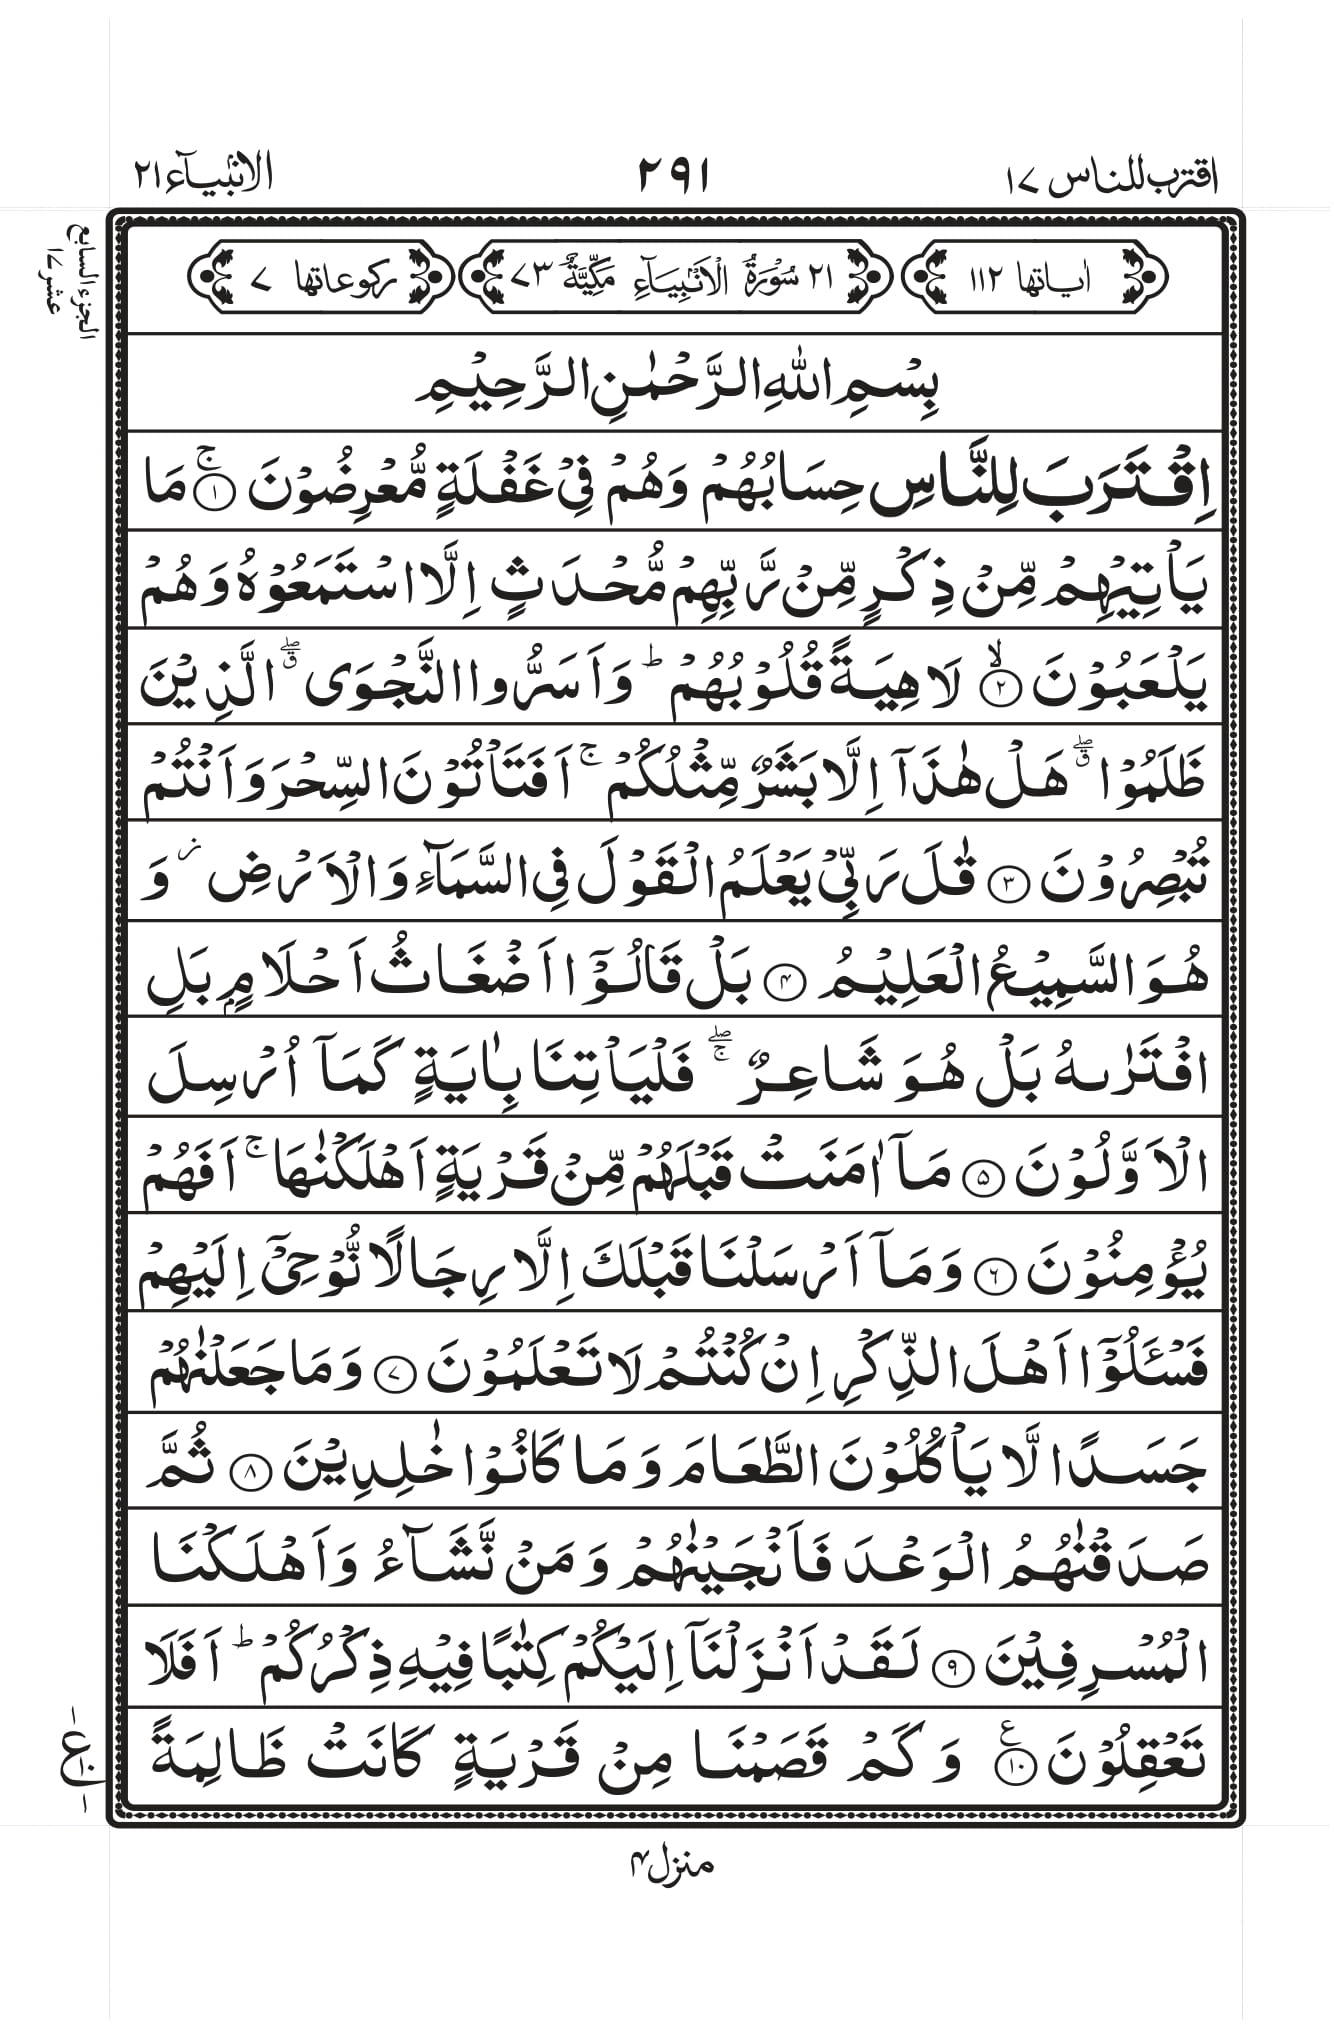 اقترب للناس ١٧
٢٩١
الانبيآء ٢١
الجزء السابع عشر ١٧
اٰياتها ١١٢
٢١ سُوْرَةُ الْاَنْۢبِيَآءِ مَكِّيَّةٌ ٧٣
ركوعاتها ٧
بِسْمِ اللّٰهِ الرَّحْمٰنِ الرَّحِيْمِ
اِقْتَرَبَ لِلنَّاسِ حِسَابُهُمْ وَهُمْ فِيْ غَفْلَةٍ مُّعْرِضُوْنَ ۚ ﴿١﴾ مَا
يَاْتِيْهِمْ مِّنْ ذِكْرٍ مِّنْ رَّبِّهِمْ مُّحْدَثٍ اِلَّا اسْتَمَعُوْهُ وَهُمْ
يَلْعَبُوْنَ ۙ ﴿٢﴾ لَاهِيَةً قُلُوْبُهُمْ ؕ وَاَسَرُّوا النَّجْوَى ۖق الَّذِيْنَ
ظَلَمُوْا ۖق هَلْ هٰذَآ اِلَّا بَشَرٌ مِّثْلُكُمْ ۚ اَفَتَاْتُوْنَ السِّحْرَ وَاَنْتُمْ
تُبْصِرُوْنَ ﴿٣﴾ قٰلَ رَبِّيْ يَعْلَمُ الْقَوْلَ فِي السَّمَآءِ وَالْاَرْضِ ز وَ
هُوَ السَّمِيْعُ الْعَلِيْمُ ﴿۴﴾ بَلْ قَالُوْٓا اَضْغَاثُ اَحْلَامٍۭ بَلِ
افْتَرٰىهُ بَلْ هُوَ شَاعِرٌ ۖۚ فَلْيَاْتِنَا بِاٰيَةٍ كَمَآ اُرْسِلَ
الْاَوَّلُوْنَ ﴿۵﴾ مَآ اٰمَنَتْ قَبْلَهُمْ مِّنْ قَرْيَةٍ اَهْلَكْنٰهَا ۚ اَفَهُمْ
يُؤْمِنُوْنَ ﴿۶﴾ وَمَآ اَرْسَلْنَا قَبْلَكَ اِلَّا رِجَالًا نُّوْحِيْٓ اِلَيْهِمْ
فَسْـَٔلُوْٓا اَهْلَ الذِّكْرِ اِنْ كُنْتُمْ لَا تَعْلَمُوْنَ ﴿٧﴾ وَمَا جَعَلْنٰهُمْ
جَسَدًا لَّا يَاْكُلُوْنَ الطَّعَامَ وَمَا كَانُوْا خٰلِدِيْنَ ﴿٨﴾ ثُمَّ
صَدَقْنٰهُمُ الْوَعْدَ فَاَنْجَيْنٰهُمْ وَمَنْ نَّشَآءُ وَاَهْلَكْنَا
الْمُسْرِفِيْنَ ﴿٩﴾ لَقَدْ اَنْزَلْنَآ اِلَيْكُمْ كِتٰبًا فِيْهِ ذِكْرُكُمْ ؕ اَفَلَا
تَعْقِلُوْنَ ﴿١٠﴾ ع وَكَمْ قَصَمْنَا مِنْ قَرْيَةٍ كَانَتْ ظَالِمَةً
١ ع ١٠ ١
منزل ۴